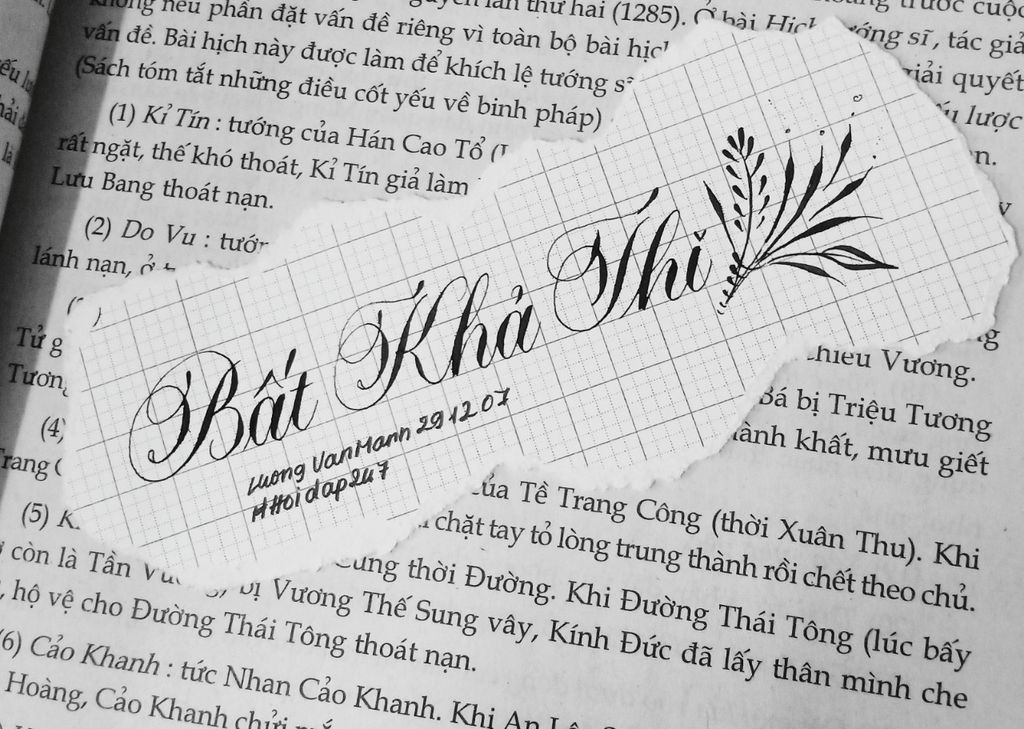 không nêu phần đặt vấn đề riêng vì toàn bộ bài
lần thứ hai (1285). Ở bài Hịch tướng sĩ, tác giả
trước cuộc
vấn đề. Bài hịch này được làm để khích lệ tướng
giải quyết
(Sách tóm tắt những điều cốt yếu về binh pháp)
lược
(1) Kỉ Tín : tướng của Hán Cao Tổ
rất ngặt, thế khó thoát, Kỉ Tín giả làm
Lưu Bang thoát nạn.
(2) Do Vu :
lánh nạn, ở
Bất Khả Thi
Luong Van Manh 29 12 07
#Hoidap247
Tử
Vương.
(4)
Bá bị Triệu Tương
Trang
hành khất, mưu giết
(5)
của Tề Trang Công (thời Xuân Thu). Khi
chặt tay tỏ lòng trung thành rồi chết theo chủ.
còn là Tần
thời Đường. Khi Đường Thái Tông (lúc bấy
bị Vương Thế Sung vây, Kính Đức đã lấy thân mình che
, hộ vệ cho Đường Thái Tông thoát nạn.
(6) Cảo Khanh : tức Nhan Cảo Khanh. Khi An
Hoàng, Cảo Khanh chửi